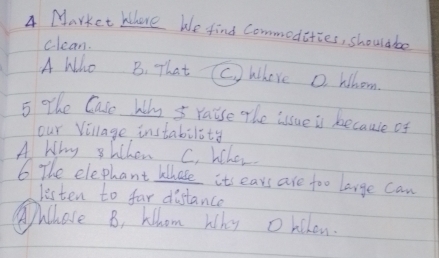 4 Market Where We find Commodities, should be
clean.
A Who B. That C. Where D. Whom.
5 The Case Why I raise the issue is because of
our Village instability
A Why B When C, When
6 The elephant Whose its ears are too large can
listen to far distance
A) Whose B, Whom Why D When.